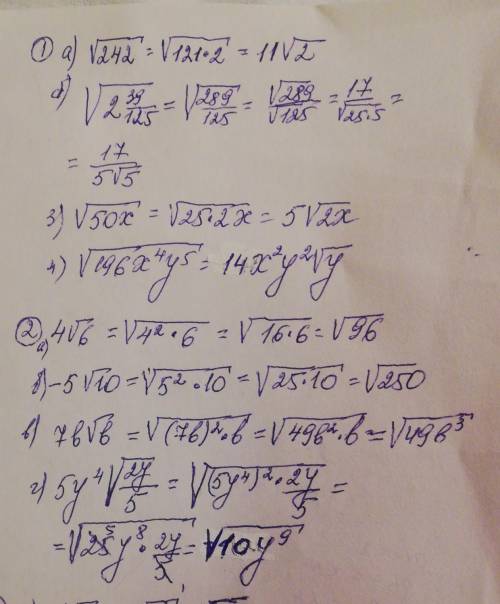 ① а) √242 = √121·2 = 11√2
б) √2 39/125 = √289/125 = √289/√125 = 17/√25·5 =
= 17/5√5
3) √50x = √25·2x = 5√2x
4) √196x⁴y⁵ = 14x²y²√y
② а) 4√6 = √4²·6 = √16·6 = √96
б) -5√10 = √5²·10 = √25·10 = √250
в) 7b√b = √(7b)²·b = √49b²·b = √49b³
г) 5y⁴√2y/5 = √(5y⁴)²·2y/5 =
= √25⁵y⁸·2y/5 = √10y⁹